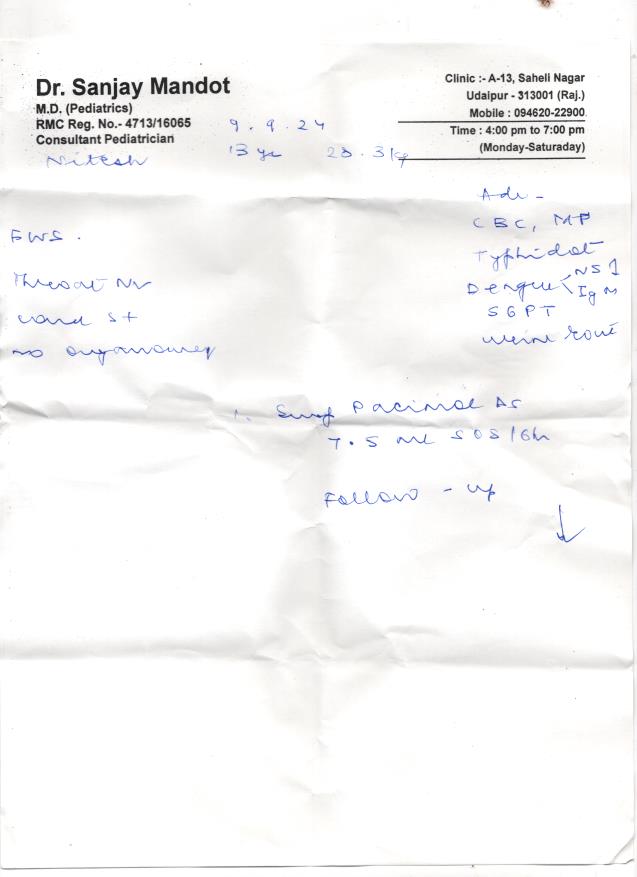 Dr. Sanjay Mandot
M.D. (Pediatrics)
RMC Reg. No.- 4713/16065
Consultant Pediatrician
Clinic :- A-13, Saheli Nagar
Udaipur - 313001 (Raj.)
Mobile : 094620-22900
Time : 4:00 pm to 7:00 pm
(Monday-Saturaday)
9.9.24
Nitesh
13 yr 28.3 kg
Adv -
CBC, MP
Typhidot
Dengue NS1
IgM
SGPT
urine rout
FWS.
Throat Nr
no organomeg
1. Syrup Pacimol DS
7.5 ml SOS/6h
Follow - up